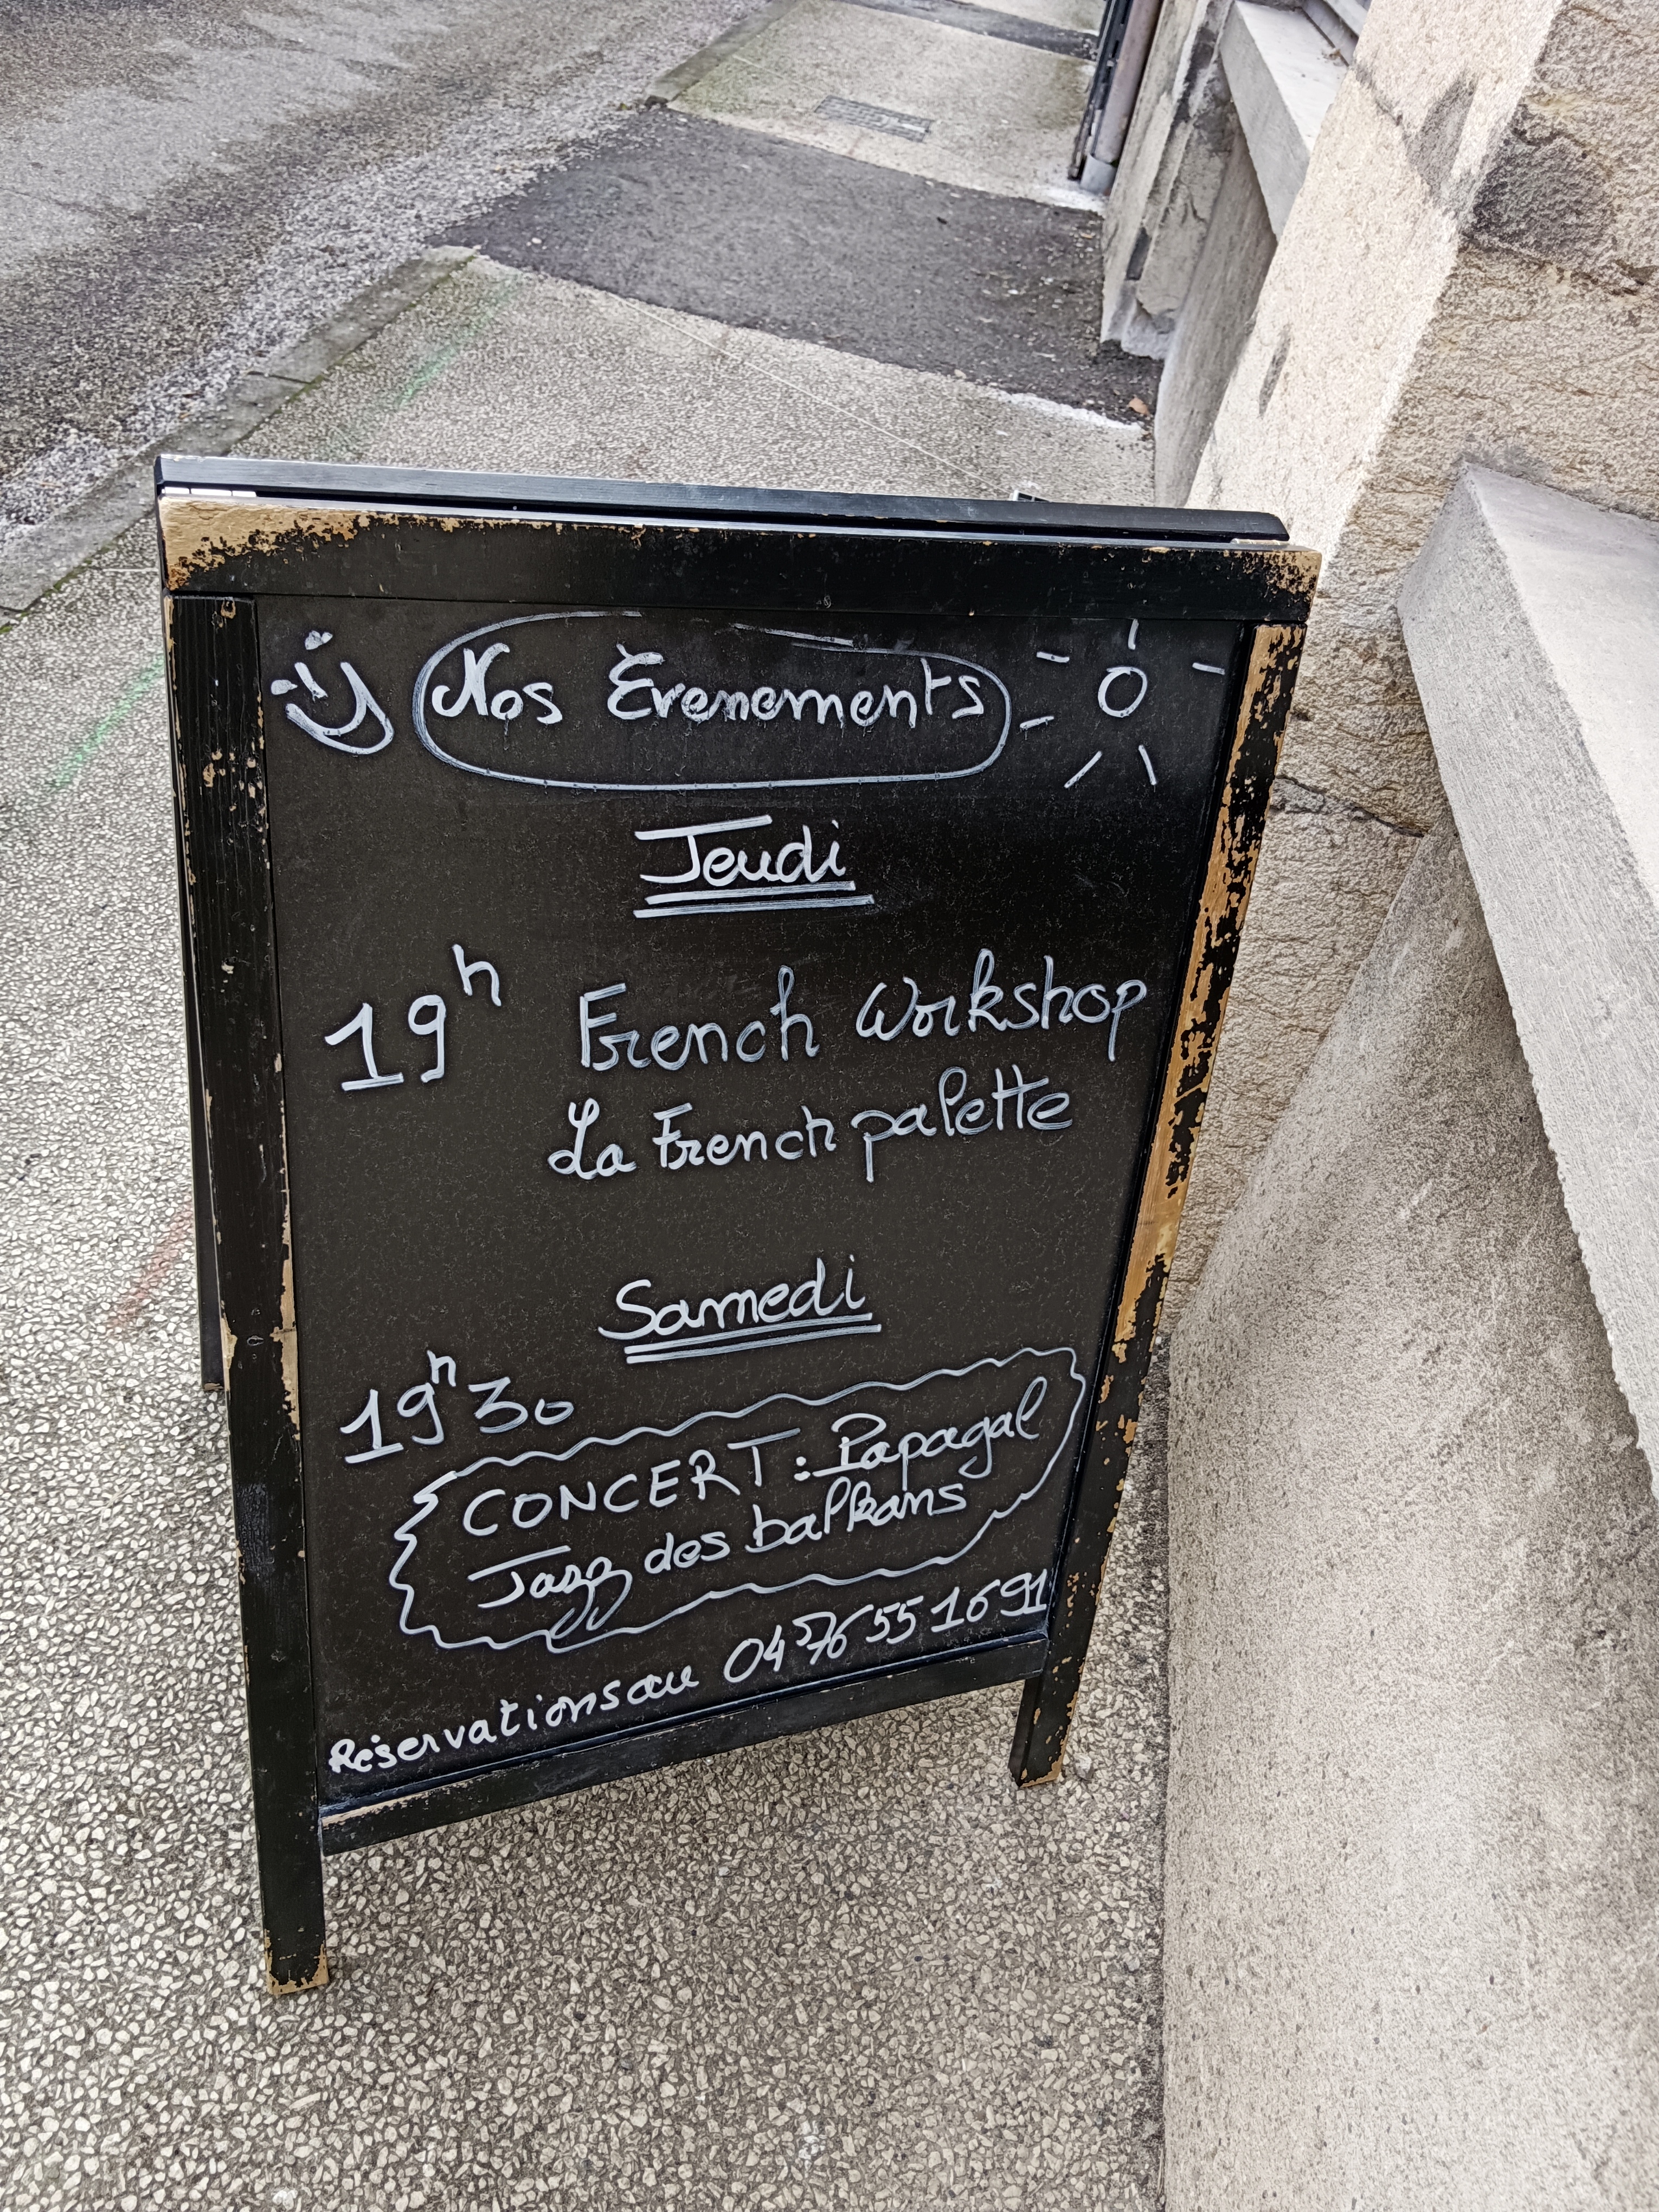 Nos Évenements
Jeudi
19h French Workshop
La French palette
Samedi
19h30
CONCERT : Papagal
Jazz des balkans
Réservations au 04 76 55 16 91